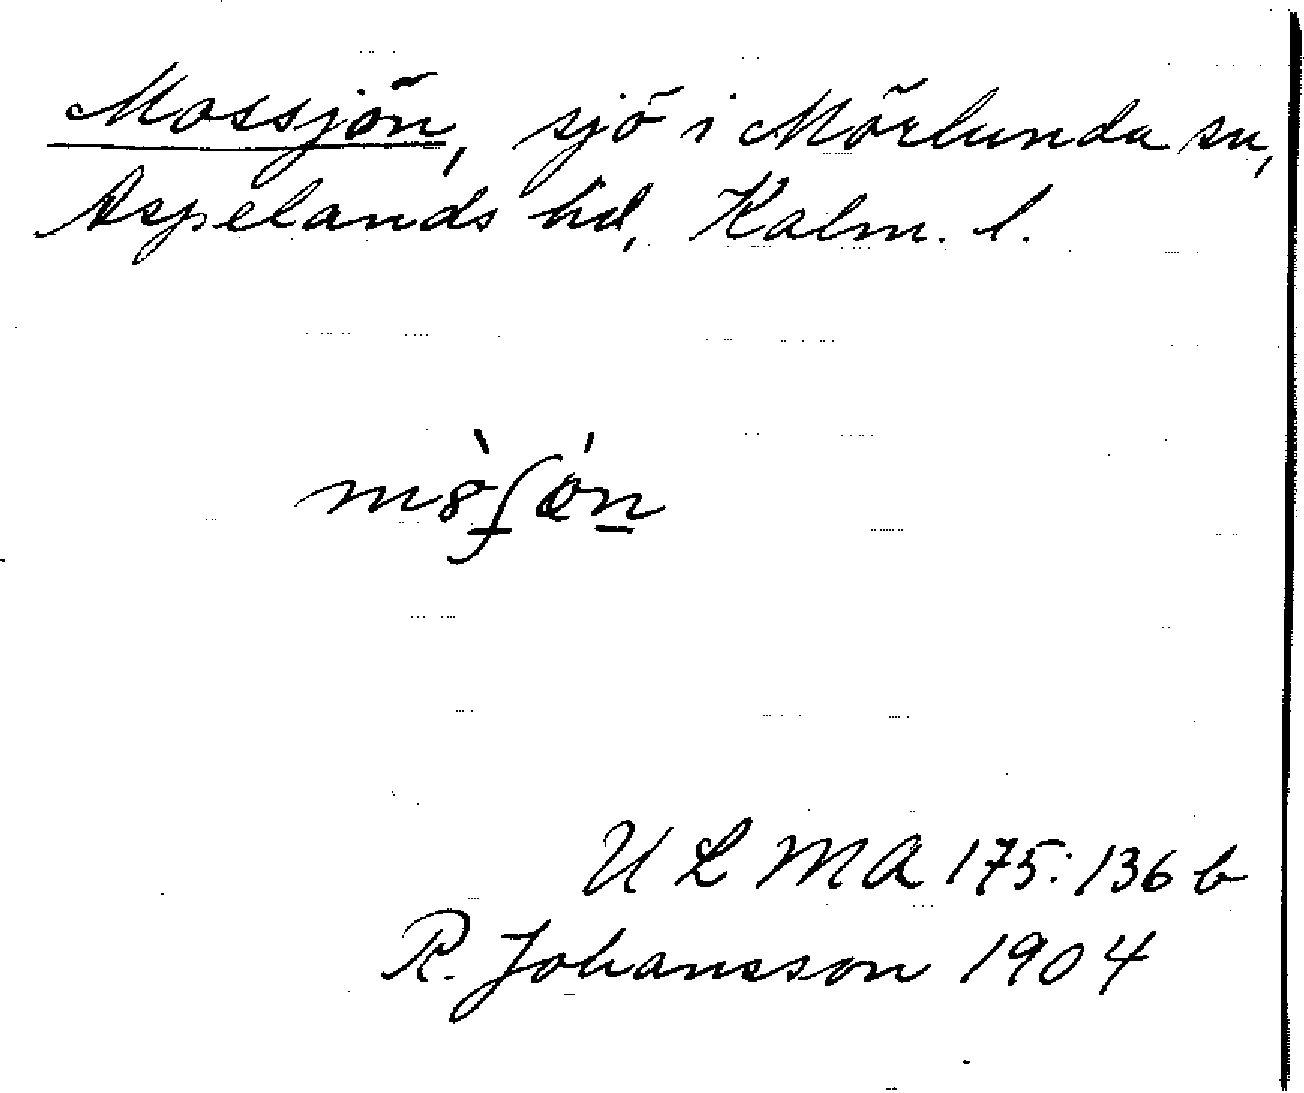 Mossjön, sjö i Mörlunda sn,
Aspelands hd, Kalm. l.
U L M A 175:136 b
R. Johansson 1904